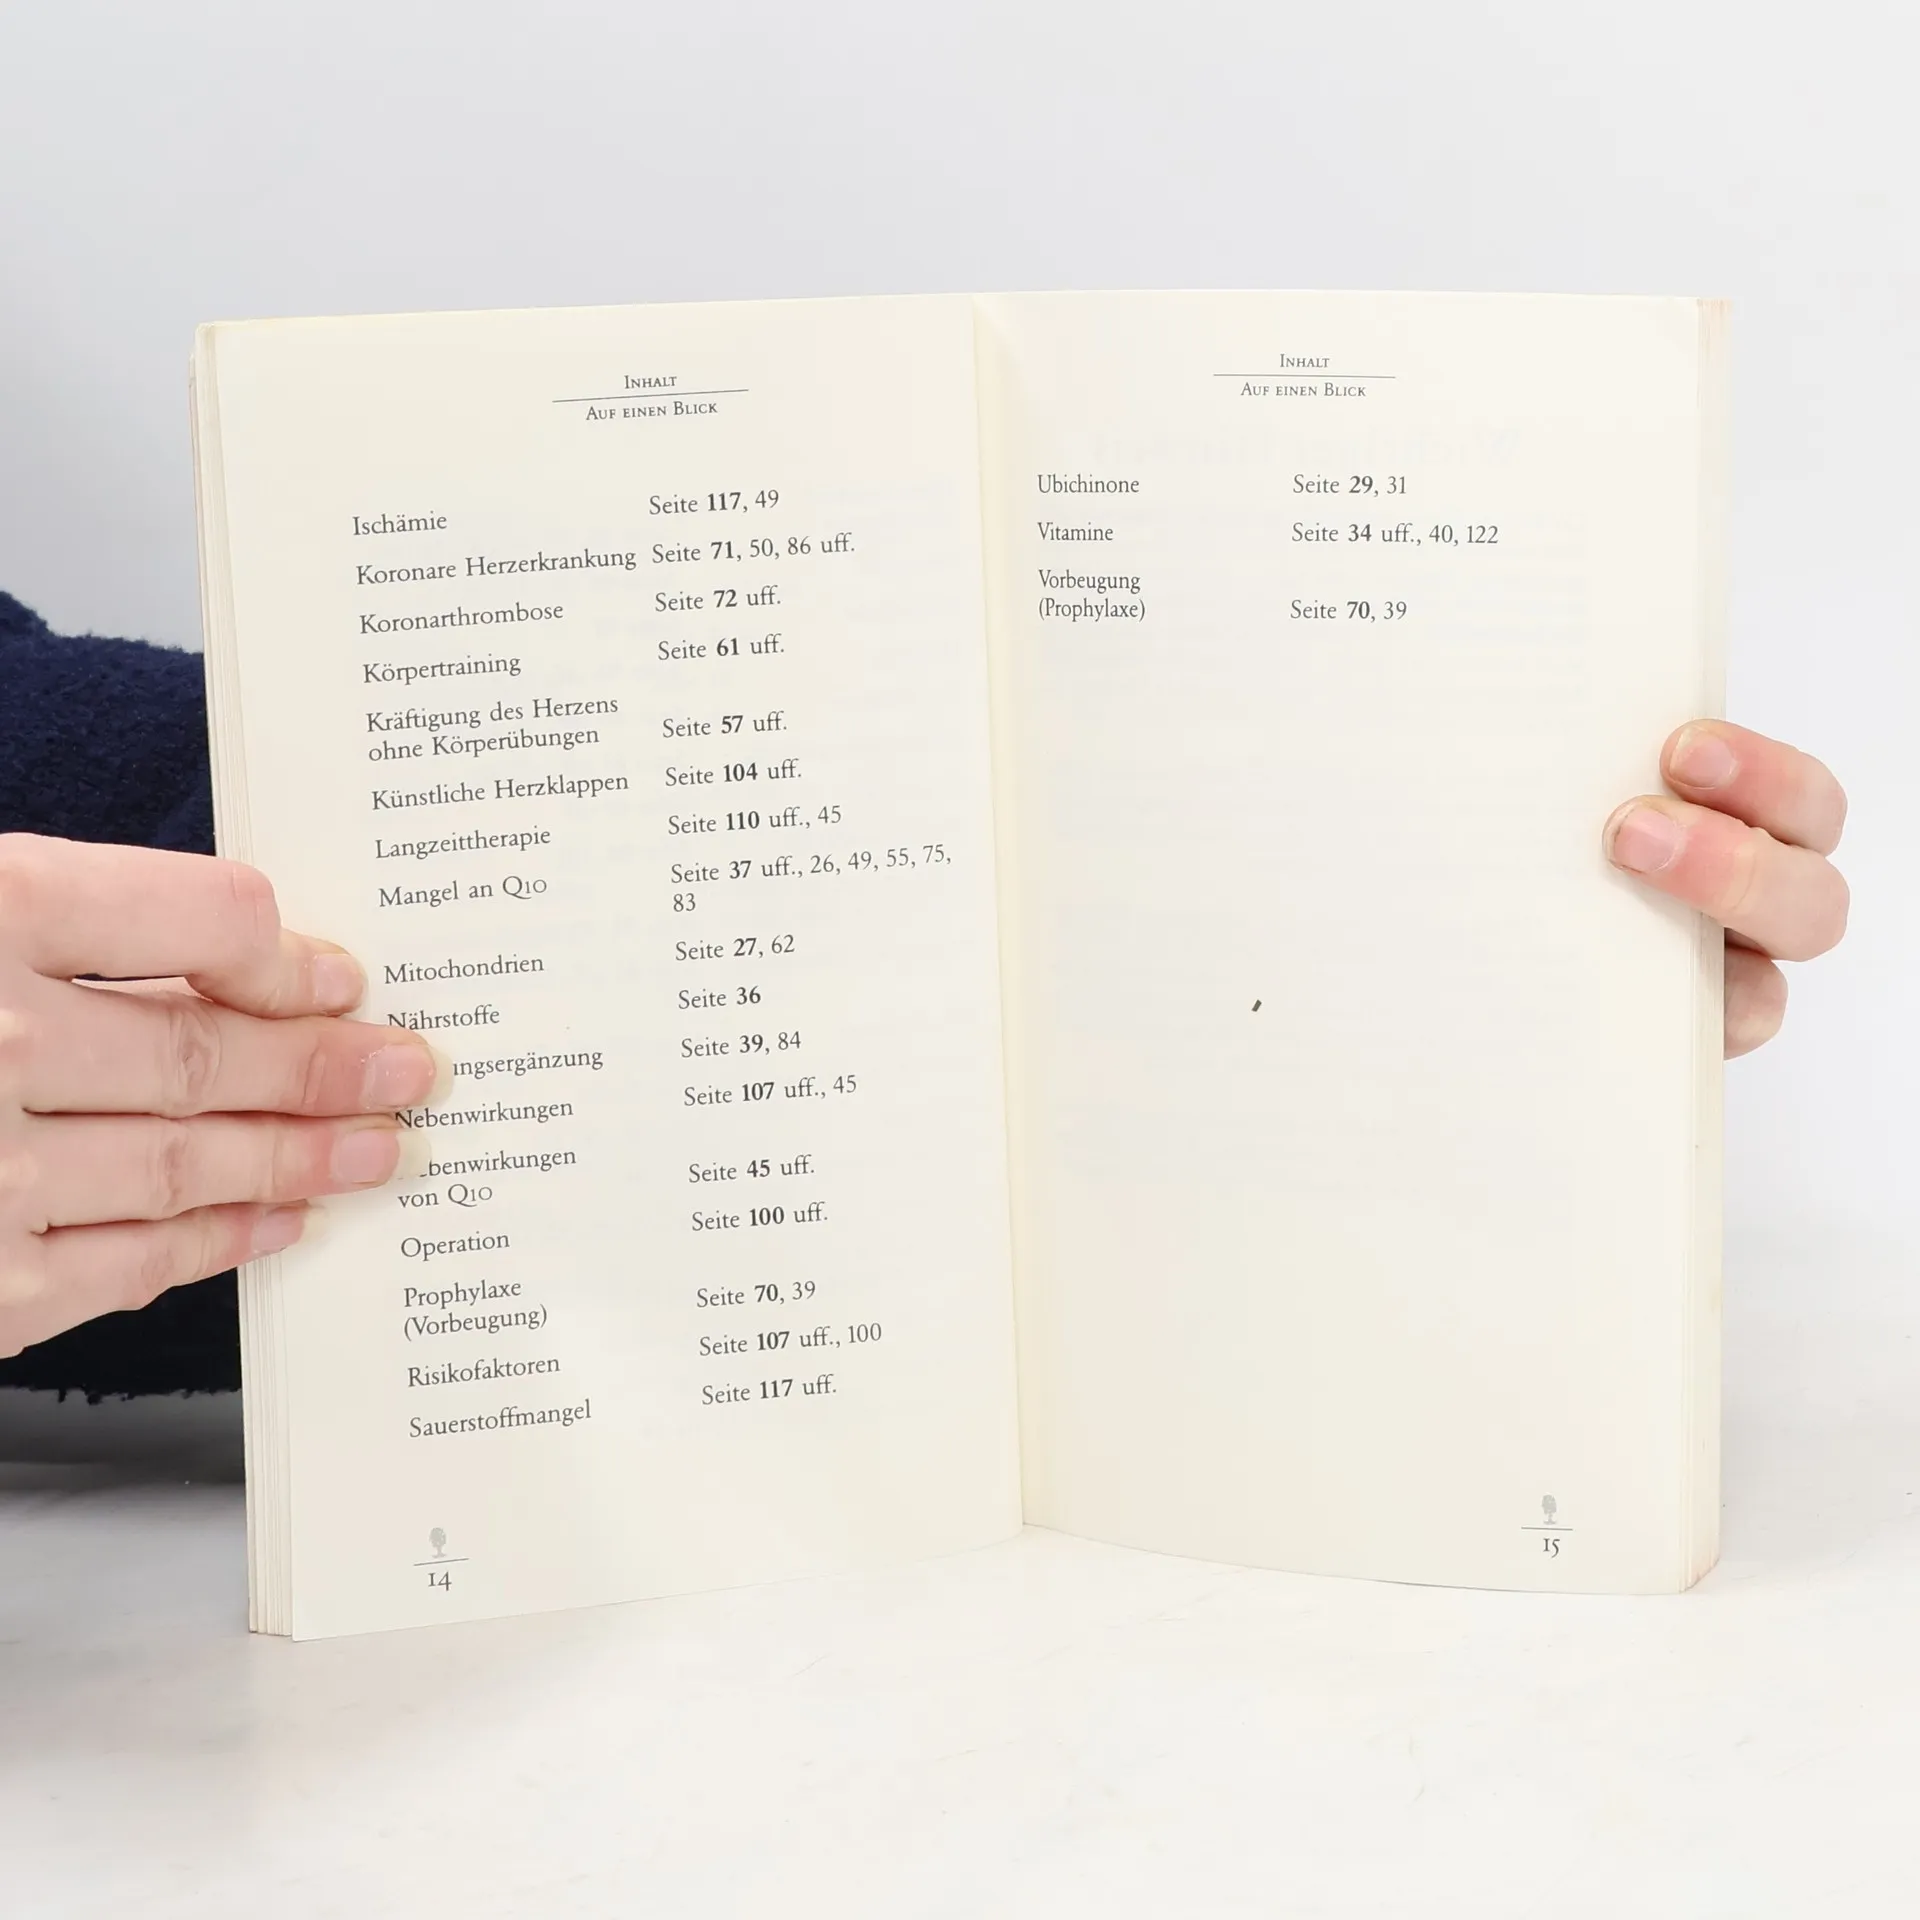 Inhalt
Auf einen Blick
Ischämie Seite 117, 49
Koronare Herzerkrankung Seite 71, 50, 86 uff.
Koronarthrombose Seite 72 uff.
Körpertraining Seite 61 uff.
Kräftigung des Herzens
ohne Körperübungen Seite 57 uff.
Künstliche Herzklappen Seite 104 uff.
Langzeittherapie Seite 110 uff., 45
Mangel an Q10 Seite 37 uff., 26, 49, 55, 75,
83
Mitochondrien Seite 27, 62
Nährstoffe Seite 36
ungsergänzung Seite 39, 84
Nebenwirkungen Seite 107 uff., 45
ebenwirkungen
von Q10 Seite 45 uff.
Operation Seite 100 uff.
Prophylaxe
(Vorbeugung) Seite 70, 39
Risikofaktoren Seite 107 uff., 100
Sauerstoffmangel Seite 117 uff.
14
Inhalt
Auf einen Blick
Ubichinone Seite 29, 31
Vitamine Seite 34 uff., 40, 122
Vorbeugung
(Prophylaxe) Seite 70, 39
15